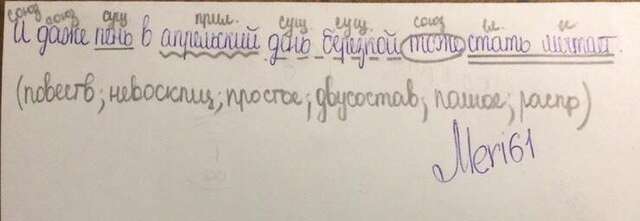 союз союз сущ прил. сущ сущ. союз гл с
И даже пень в апрельский день берёзкой тоже стать мечтает.
(повеств; невосклиц; простое; двусостав; полное; распр)
Meri61